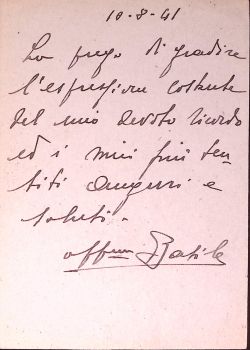 10-8-41
La prego di gradire
l'espressione costante
del mio devoto ricordo
ed i miei più sen-
titi auguri e
saluti.
aff.mo Basile